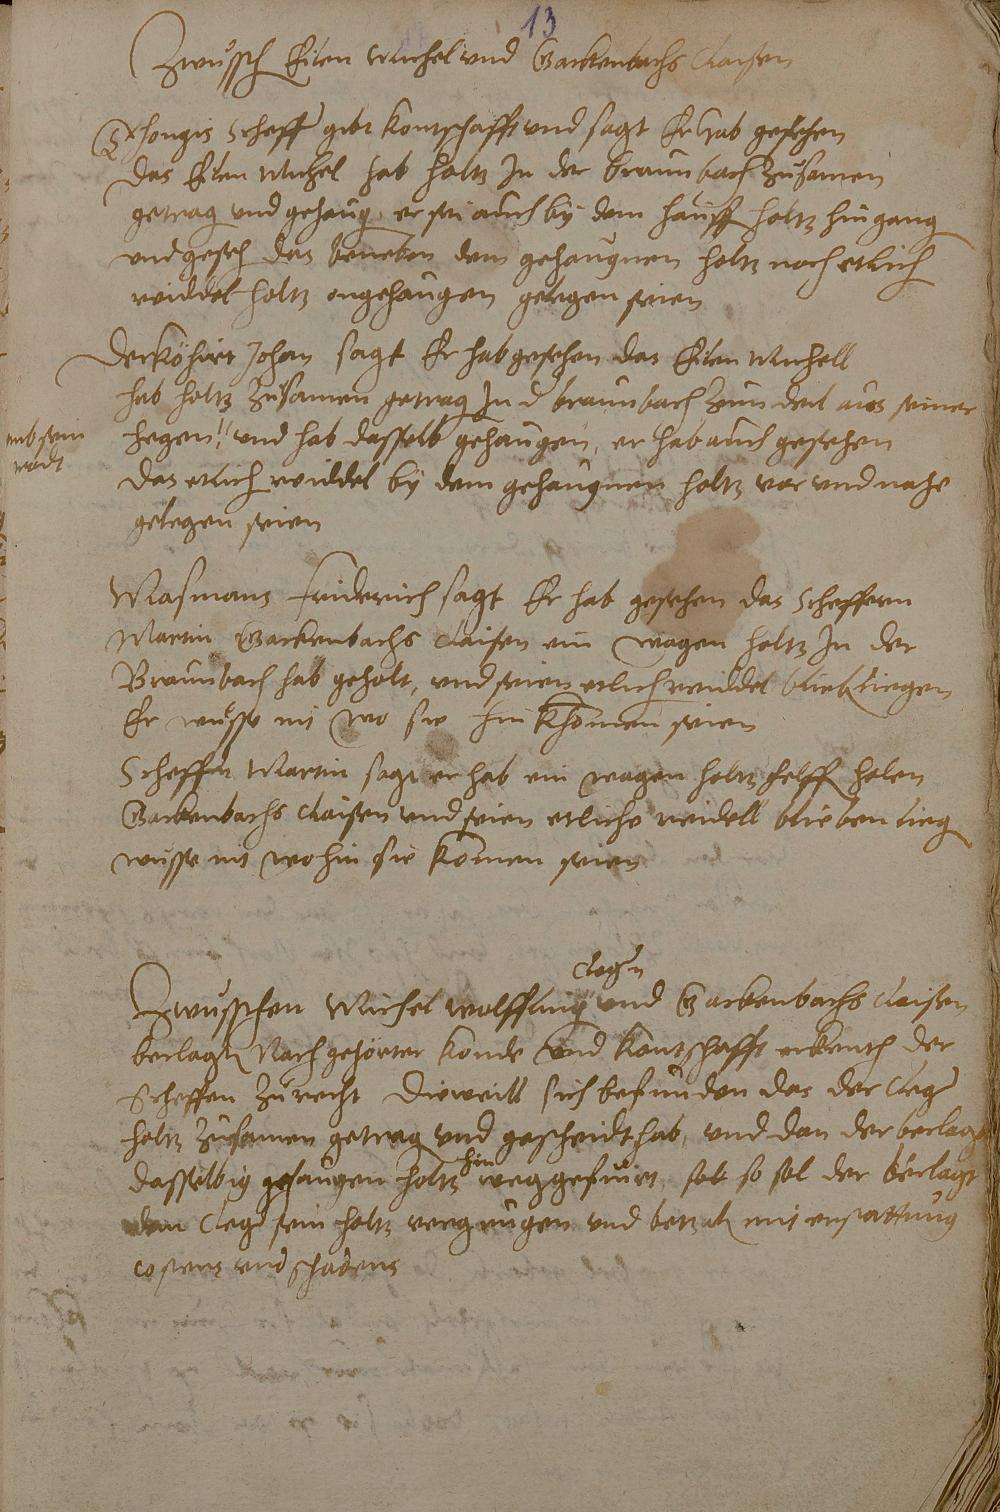 13
Zwüssch Eilen Michel und Gackenbachs Claisen
Thongis Scheffer gibt kontschafft und sagt Er hab gesehen
das Eilen Michel hab holtz In der braunbach zusamen
getrag und gehaug, er sei auch by dem hauff holtz hingang
und geseh das beneben dem gehaugnen holtz noch etlich
reiddel holtz ongehaugen gelegen seien
Der köhirt Johan sagt Er hab gesehen das Eilen Michell
hab holtz zusamen getrag In d braunbach zum deil aus seiner
hegen und hab dasselb gehaugen, er hab auch gesehen
umb sein
das etlich reiddel by dem gehaugnen holtz vor und nahe
gelegen seien
Masmans Friderich sagt Er hab gesehen das Scheffern
Martin Gackenbachs Claisen ein wagen holtz In der
Braunbach hab geholt, und seien etlich reiddel blieb liegen
Er wusse nit wo sie hin khomen seien
Scheffer Martin sagt er hab ein wagen holtz helff holen
Gackenbachs Claisen und seien etliche reidell blieben lieg
wusse nit wohin sie komen seien
Cleger
Zwusschen Michel Wolffling und Gackenbachs Claisen
beclagt Nach gehörter konde und kontschafft erkenth der
Scheffen zu recht Dieweill sich befunden das der Cleger
holtz zusamen getrag und gescheidt hab, und dan der beclagt
dasselbig gehaugen holtz hinweggefuirt, hab so sol der beclagt
dem Cleger sein holtz vergnugen und betzaln mit erstattung
costens und schadens